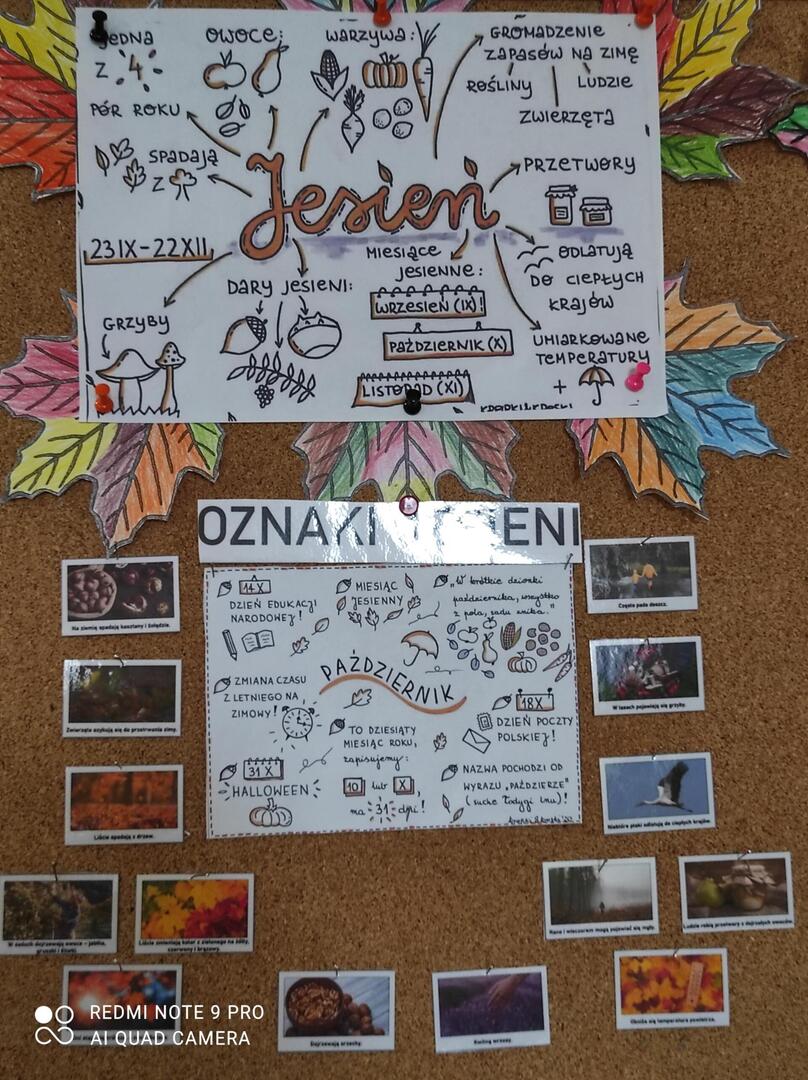 JEDNA
Z 4
PÓR ROKU
OWOCE:
WARZYWA:
GROMADZENIE
ZAPASÓW NA ZIMĘ
ROŚLINY
LUDZIE
ZWIERZĘTA
SPADAJĄ
Z
Jesień
PRZETWORY
23 IX - 22 XII
MIESIĄCE
JESIENNE:
WRZESIEŃ (IX)!
PAŹDZIERNIK (X)
LISTOPAD (XI)
ODLATUJĄ
DO CIEPŁYCH
KRAJÓW
DARY JESIENI:
GRZYBY
UMIARKOWANE
TEMPERATURY
+
OZNAKI JESIENI
14 X
DZIEŃ EDUKACJI
NARODOWEJ!
MIESIĄC
JESIENNY
„W krótkie dzionki
października, wszystko
z pola, sadu znika."
PAŹDZIERNIK
ZMIANA CZASU
Z LETNIEGO NA
ZIMOWY!
TO DZIESIĄTY
MIESIĄC ROKU,
zapisujemy:
10 lub X,
ma 31 dni!
18 X
DZIEŃ POCZTY
POLSKIEJ!
31 X
HALLOWEEN
NAZWA POCHODZI OD
WYRAZU „PAŹDZIERZE"
(suche łodygi lnu)!
Na ziemię spadają kasztany i żołędzie.
Zwierzęta szykują się do przetrwania zimy.
Liście spadają z drzew.
W sadach dojrzewają owoce – jabłka,
gruszki i śliwki.
Liście zmieniają kolor z zielonego na żółty,
czerwony i brązowy.
Dojrzewają orzechy.
Kwitną wrzosy.
Częściej pada deszcz.
W lasach pojawiają się grzyby.
Niektóre ptaki odlatują do ciepłych krajów.
Rano i wieczorem mogą pojawiać się mgły.
Ludzie robią przetwory z dojrzałych owoców.
Obniża się temperatura powietrza.
REDMI NOTE 9 PRO
AI QUAD CAMERA